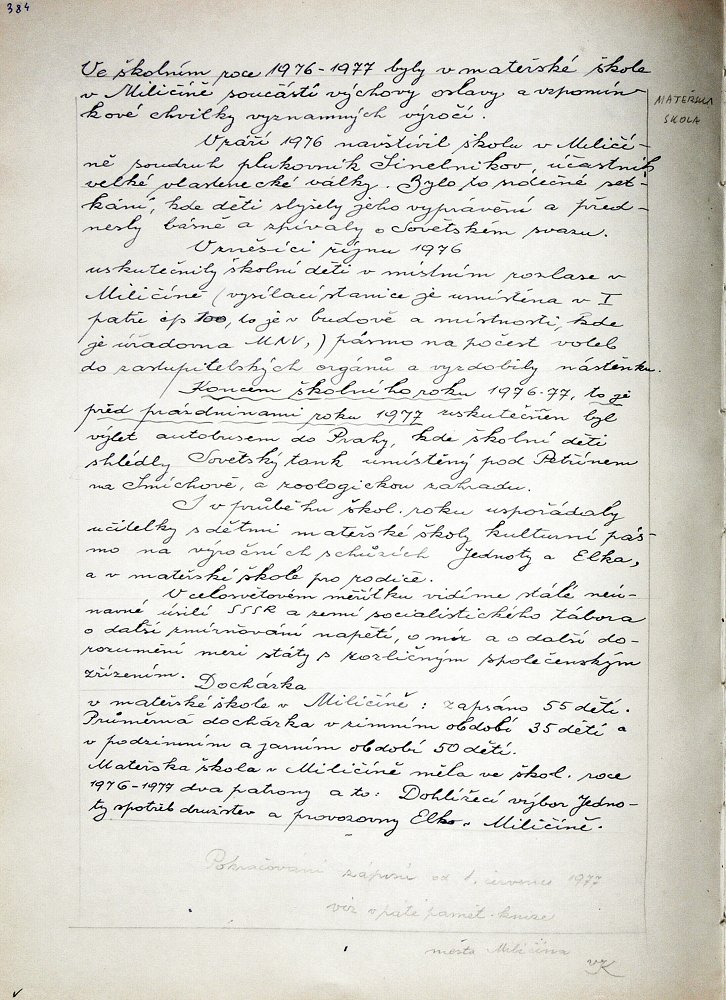 384
Ve školním roce 1976-1977 byly v mateřské škole
v Miličíně součástí výchovy oslavy a vzpomín-
kové chvilky významných výročí.
MATEŘSKÁ
ŠKOLA
V září 1976 navštívil školu v Miličí-
ně soudruh plukovník Sinelnikov, účastník
velké vlastenecké války. Bylo to srdečné set-
kání, kde děti slyšely jeho vyprávění a před-
nesly básně a zpívaly o Sovětském svazu.
V měsíci říjnu 1976
uskutečnily školní děti v místním rozlase v
Miličíně (vysílací stanice je umístěna v I
patře čp 100, to je v budově a místnosti, kde
je úřadovna MNV,) pásmo na počest voleb
do zastupitelských orgánů a vyzdobily nástěnku.
Koncem školního roku 1976-77, to je
před prázdninami roku 1977 uskutečněn byl
výlet autobusem do Prahy, kde školní děti
shlédly Sovětský tank umístěný pod Petřínem
na Smíchově, a zoologickou zahradu.
I v průběhu škol. roku uspořádaly
učitelky s dětmi mateřské školy kulturní pás-
mo na výročních schůzích Jednoty a Elka,
a v mateřské škole pro rodiče.
V celosvětovém měřítku vidíme stálé neú-
navné úsilí SSSR a zemí socialistického tábora
o další zmírňování napětí, o mír a o další do-
rozumění mezi státy s rozličným společenským
zřízením.
Docházka
v mateřské škole v Miličíně: zapsáno 55 dětí.
Průměrná docházka v zimním období 35 dětí a
v podzimním a jarním období 50 dětí.
Mateřská škola v Miličíně měla ve škol. roce
1976-1977 dva patrony a to: Dohlížecí výbor Jedno-
ty spotřeb družstev a provozovny Elko v Miličíně.
Pokračování zápisů od 1. července 1977
viz v páté pamět. knize
města Miličína
VK